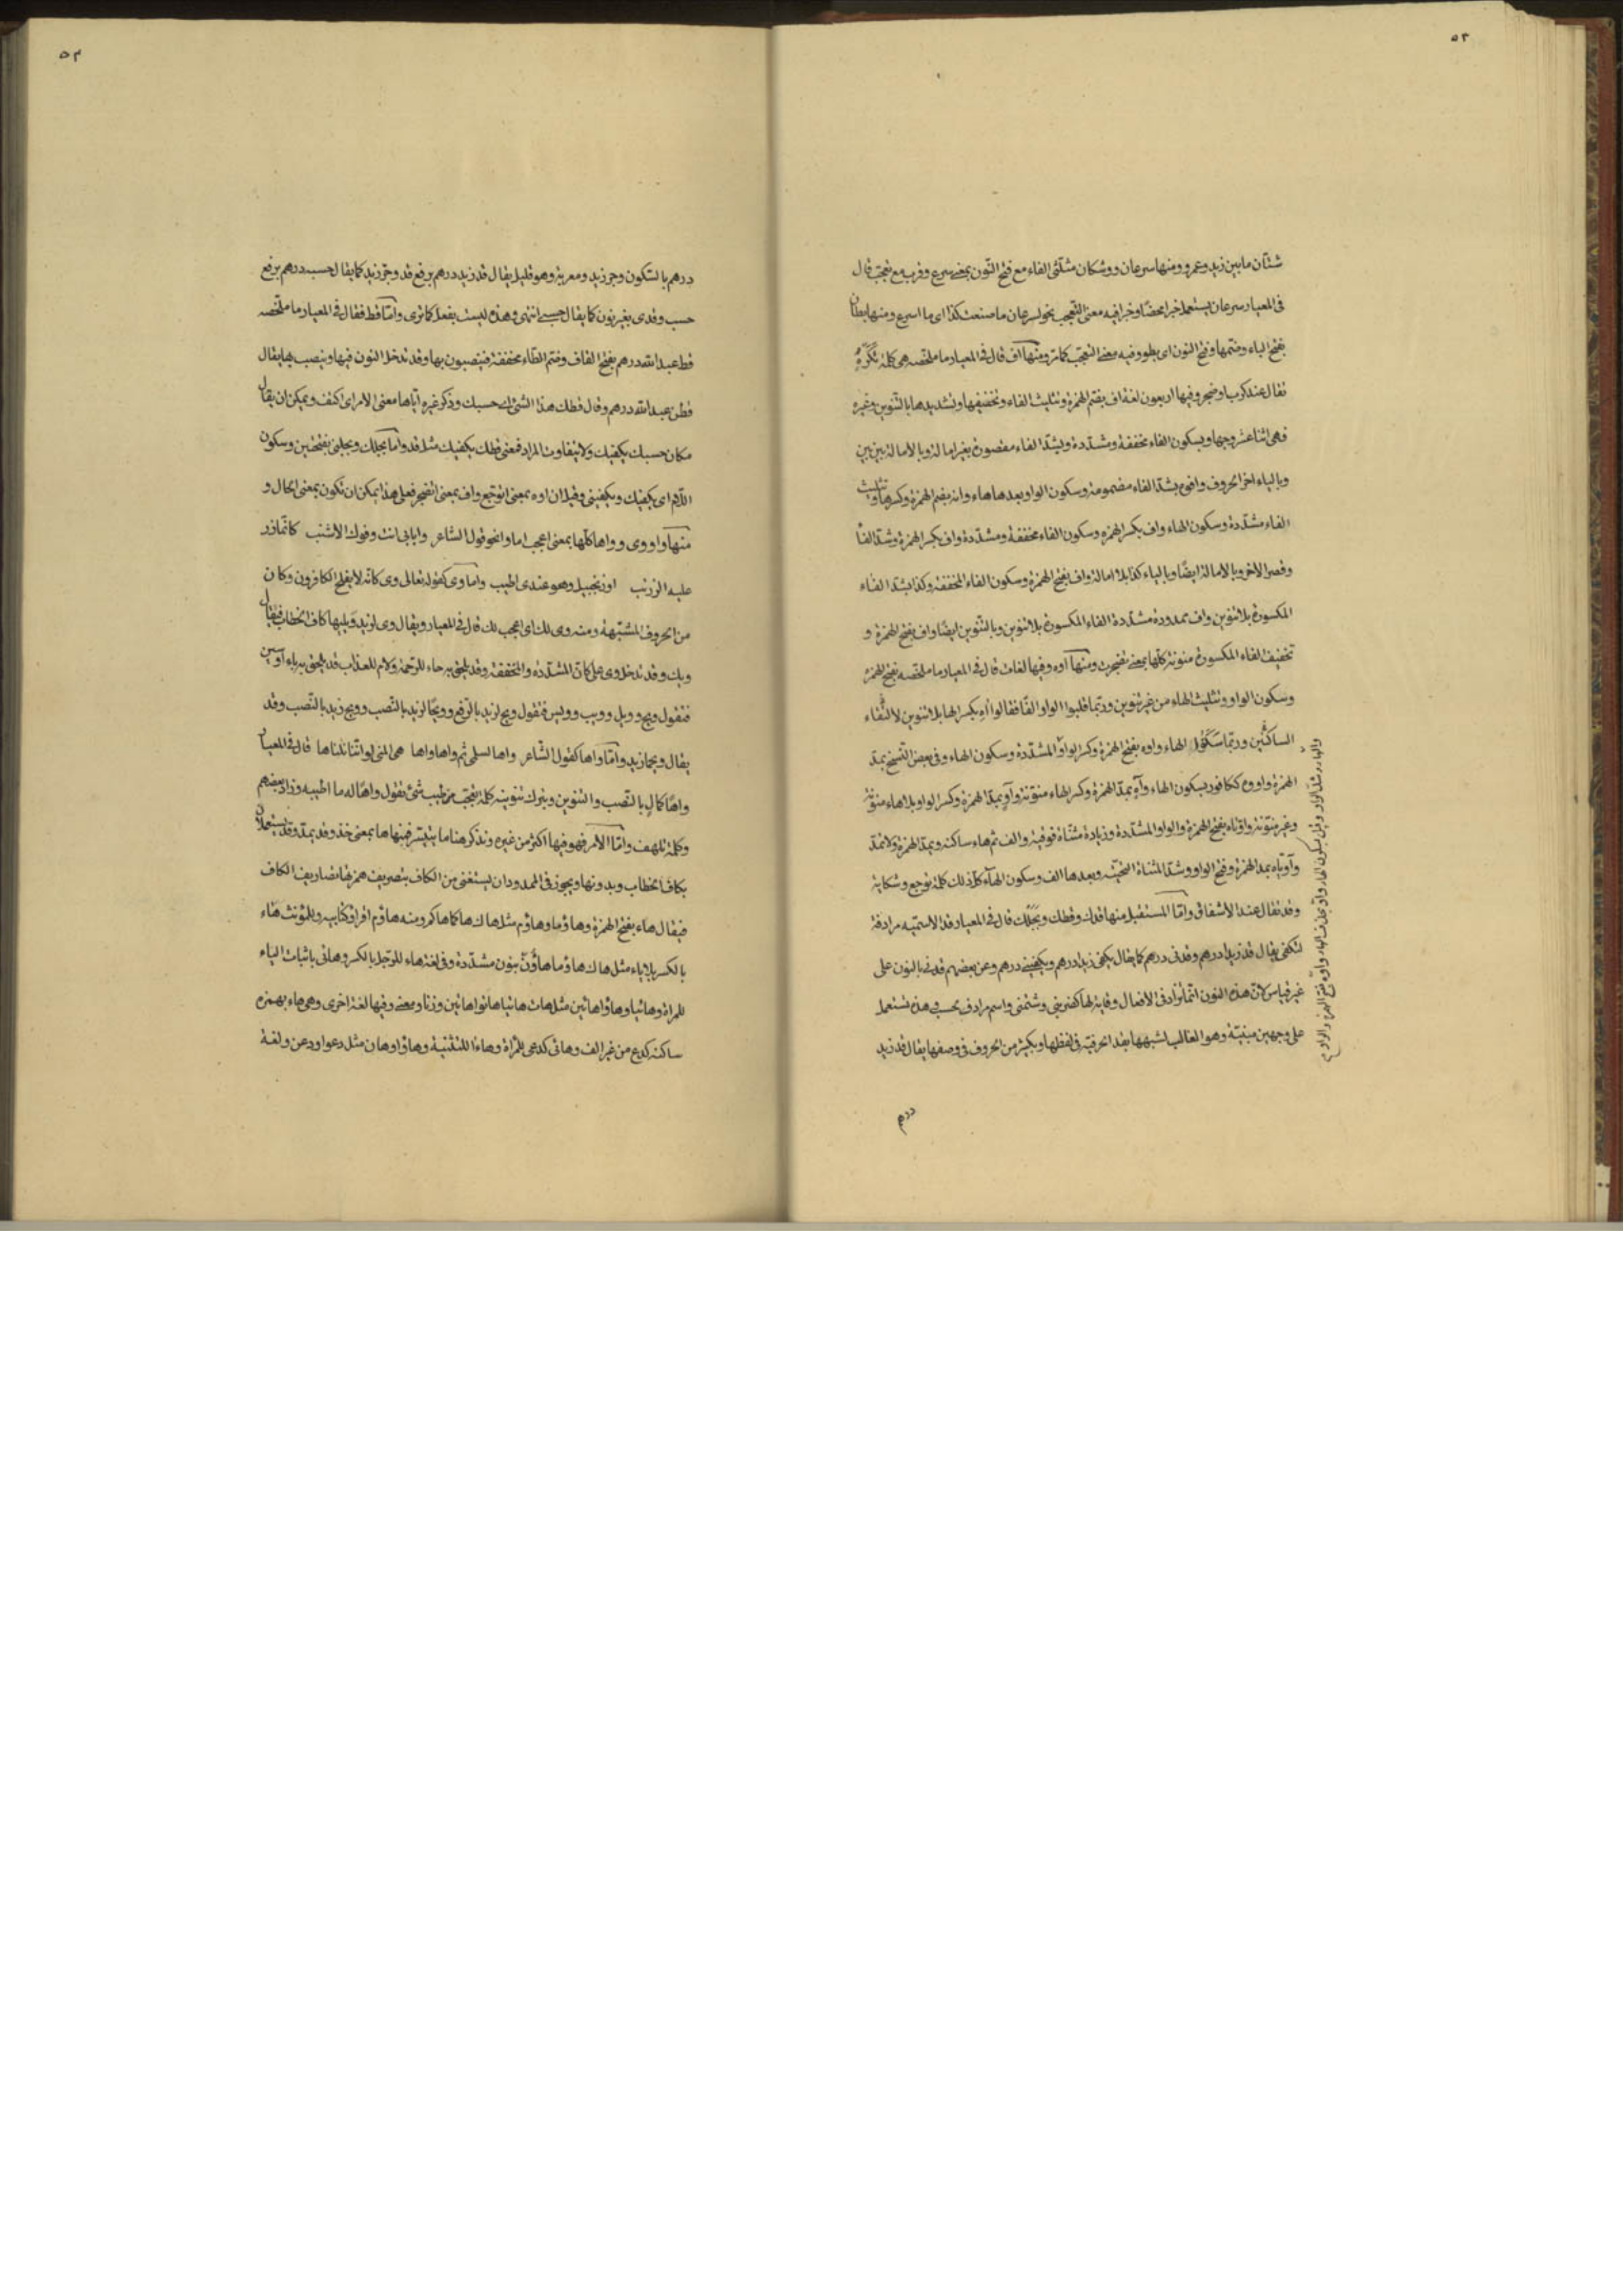 ٥٢
شتان مابين زيد وعمرو ومنها سرعان ووشكان مثلثى الفاء مع فتح النون بمعنى سرع وقرب مع تعجب قال
فى المعيار سرعان يستعمل خبرا محضا وخبرا فيه معنى التعجب نحو لسرعان ما صنعت كذا اى ما اسرع ومنها بطان
بفتح الباء وضمها وفتح النون اى بطوء وفيه معنى التعجب كما مر ومنها اف قال فى المعيار ما ملخصه هى كلمة تكره
تقال عند كرب او ضجر وفيها اربعون لغة اف بضم الهمزة وتثليث الفاء وتخفيفها وتشديدها بالتنوين وغيره
فهى اثنا عشر وجها وبسكون الفاء مخففة ومشددة وبشد الفاء مقصورة بغير امالة وبالامالة بين بين
وبالياء اخر الحروف وافوه بشد الفاء مضمومة وسكون الواو بعدها هاء وانه بضم الهمزة وكسرها وتثليث
الفاء مشددة وسكون الهاء واف بكسر الهمزه وسكون الفاء مخففة ومشددة واف بكسر الهمزة وشد الفاء
وقصر الاخر وبالامالة ايضا وبالياء كذا بلا امالة واف بفتح الهمزة وسكون الفاء المخففة وكذا بشد الفاء
المكسورة بلا تنوين واف ممدودة مشددة الفاء المكسورة بلا تنوين وبالتنوين ايضا واف بفتح الهمزة و
تخفيف الفاء المكسورة منونة كلها بمعنى تضجرت ومنها اوه وفيها لغات قال فى المعيار ما ملخصه بفتح الهمزه
وسكون الواو وتثليث الهاء من غير تنوين وربما قلبوا الواو الفا فقالوا اه بكسر الها بلا تنوين لالتقاء
الساكنين وربما سكنوا الهاء واوه بفتح الهمزة وكسر الواو المشددة وسكون الهاء وفى بعض النسخ بمد
الهمزة واووه ككافور بسكون الهاء وآه بمد الهمزة وكسر الهاء منونة وآو بمد الهمزة وكسر الواو بلا هاء منونة
وغير منونة واوتاه بفتح الهمزة والواو المشددة وزيادة مثناة فوقية والف ثم هاء ساكنه وبمد الهمزة ولا تمد
وآويّاه بمد الهمزة وفتح الواو وشد المثناة التحتيه وبعدها الف وسكون الهاء كل ذلك كلمة توجع وشكاية
وقد تقال عند الاشفاق واما المستقبل منها قدك وقطك وبجلك قال فى المعيار قد الاسميه مرادفة
لتكفى يقال قد زيدا درهم وقدنى درهم كما يقال يكفى زيدا درهم ويكفينى درهم وعن بعضهم قدنى بالنون على
غير قياس لان هذه النون انما تزاد فى الافعال وقاية لها كضربنى وشتمنى واسم مرادف بحسب وهذه تستعمل
على وجهين مبنية وهو الغالب لشبهها بقد الحرفيه فى لفظها وبكثير من الحروف فى وضعها يقال قد زيد
درهم
٥٣
درهم بالسكون وجر زيد ومعربة وهو قليل يقال قد زيد درهم برفع قد وجر زيد كما يقال حسب درهم برفع
حسب وقدى بغير نون كما يقال حسبى انتهى وهذه ليست بفعل كما ترى واما قط فقال فى المعيار ما ملخصه
قط عبد الله درهم بفتح القاف وضم الطاء مخففة فينصبون بها وقد تدخل النون فيها وينصب بها يقال
قطن عبد الله درهم وقال قطك هذا الشئ اى حسبك وذكر غيره اياها معنى الامر اى اكتف ويمكن ان يقال
مكان حسبك يكفيك ولا يتفاوت المراد فمعنى قطك يكفيك مثل قد واما بجلك وبجلنى بفتحتين وسكون
اللام اى يكفيك ويكفينى وقيل ان اوه بمعنى اتوجع واف بمعنى اتضجر فعلى هذا يمكن ان تكون بمعنى الحال و
منها وا ووى وواها كلها بمعنى اعجب اما وا نحو قول الشاعر وابابى انت وفوك الاشنب كانما ذر
عليه الزرنب او زنجبيل وهو عندى اطيب واما وى كقوله تعالى وى كانه لا يفلح الكافرون وكان
من الحروف المشبهة ومنه وى لك اى اعجب لك قال فى المعيار ويقال وى لزيد ويليها كاف الخطاب فيقال
ويك وقد تدخل وى على كان المشددة والمخففة وقد يلحق به حاء للرحمة ولام للعذاب قد يلحق به باء او سين
فتقول ويح وويل وويب وويس فتقول ويح لزيد بالرفع وويحا لزيد بالنصب وويح زيد بالنصب وقد
يقال ويحما زيد واما واها كقول الشاعر واها لسلمى ثم واها واها هى المنى لو اننا نلناها قال فى المعيار
واها كمال بالنصب والتنوين ويترك تنوينه كلمة تعجب من طيب شئ تقول واها له ما اطيبه وزاد بعضهم
وكلمة تلهف واما الامر فهو فيها اكثر من غيره ونذكر هنا ما يتيسر فمنها ها بمعنى خذ وقد يمد وقد يستعملان
بكاف الخطاب وبدونها ويجوز فى الممدود ان يستغنى من الكاف بتصريف همزتها تصاريف الكاف
فيقال هاء بفتح الهمزة وهاؤما وهاؤم مثل هاك هاكما هاكم ومنه هاؤم اقراؤ كتابيه وللمؤنث هاء
بالكسر بلا ياء مثل هاك هاؤما هاؤن بنون مشددة وفى لغة هاء للرجل بالكسر وهائى باثبات الياء
للمراة وهائيا وهاؤا هائين مثل هات هاتيا هاتوا هاتين وزنا ومعنى وفيها لغة اخرى وهى هاء بهمزه
ساكنه كدع من غير الف وهائى كدعى للمراة وهاءا للتثنية وهاؤا وهان مثل دعوا ودعن ولغة